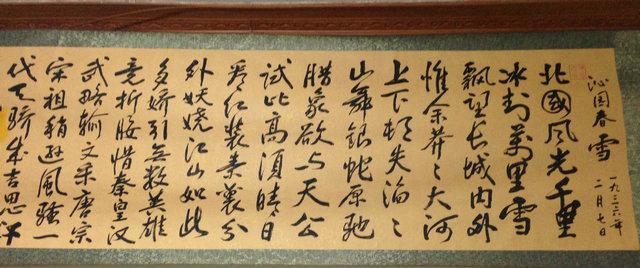 沁园春 雪
一九三六年
二月七日
北國风光千里
冰封萬里雪
飄望长城内外
惟余莽〻大河
上下顿失滔〻
山舞银蛇原驰
腊象欲与天公
试比高须晴日
看红装素裹分
外妖娆江山如此
多娇引无数英雄
竞折腰惜秦皇汉
武略输文采唐宗
宋祖稍逊风骚一
代天骄成吉思汗